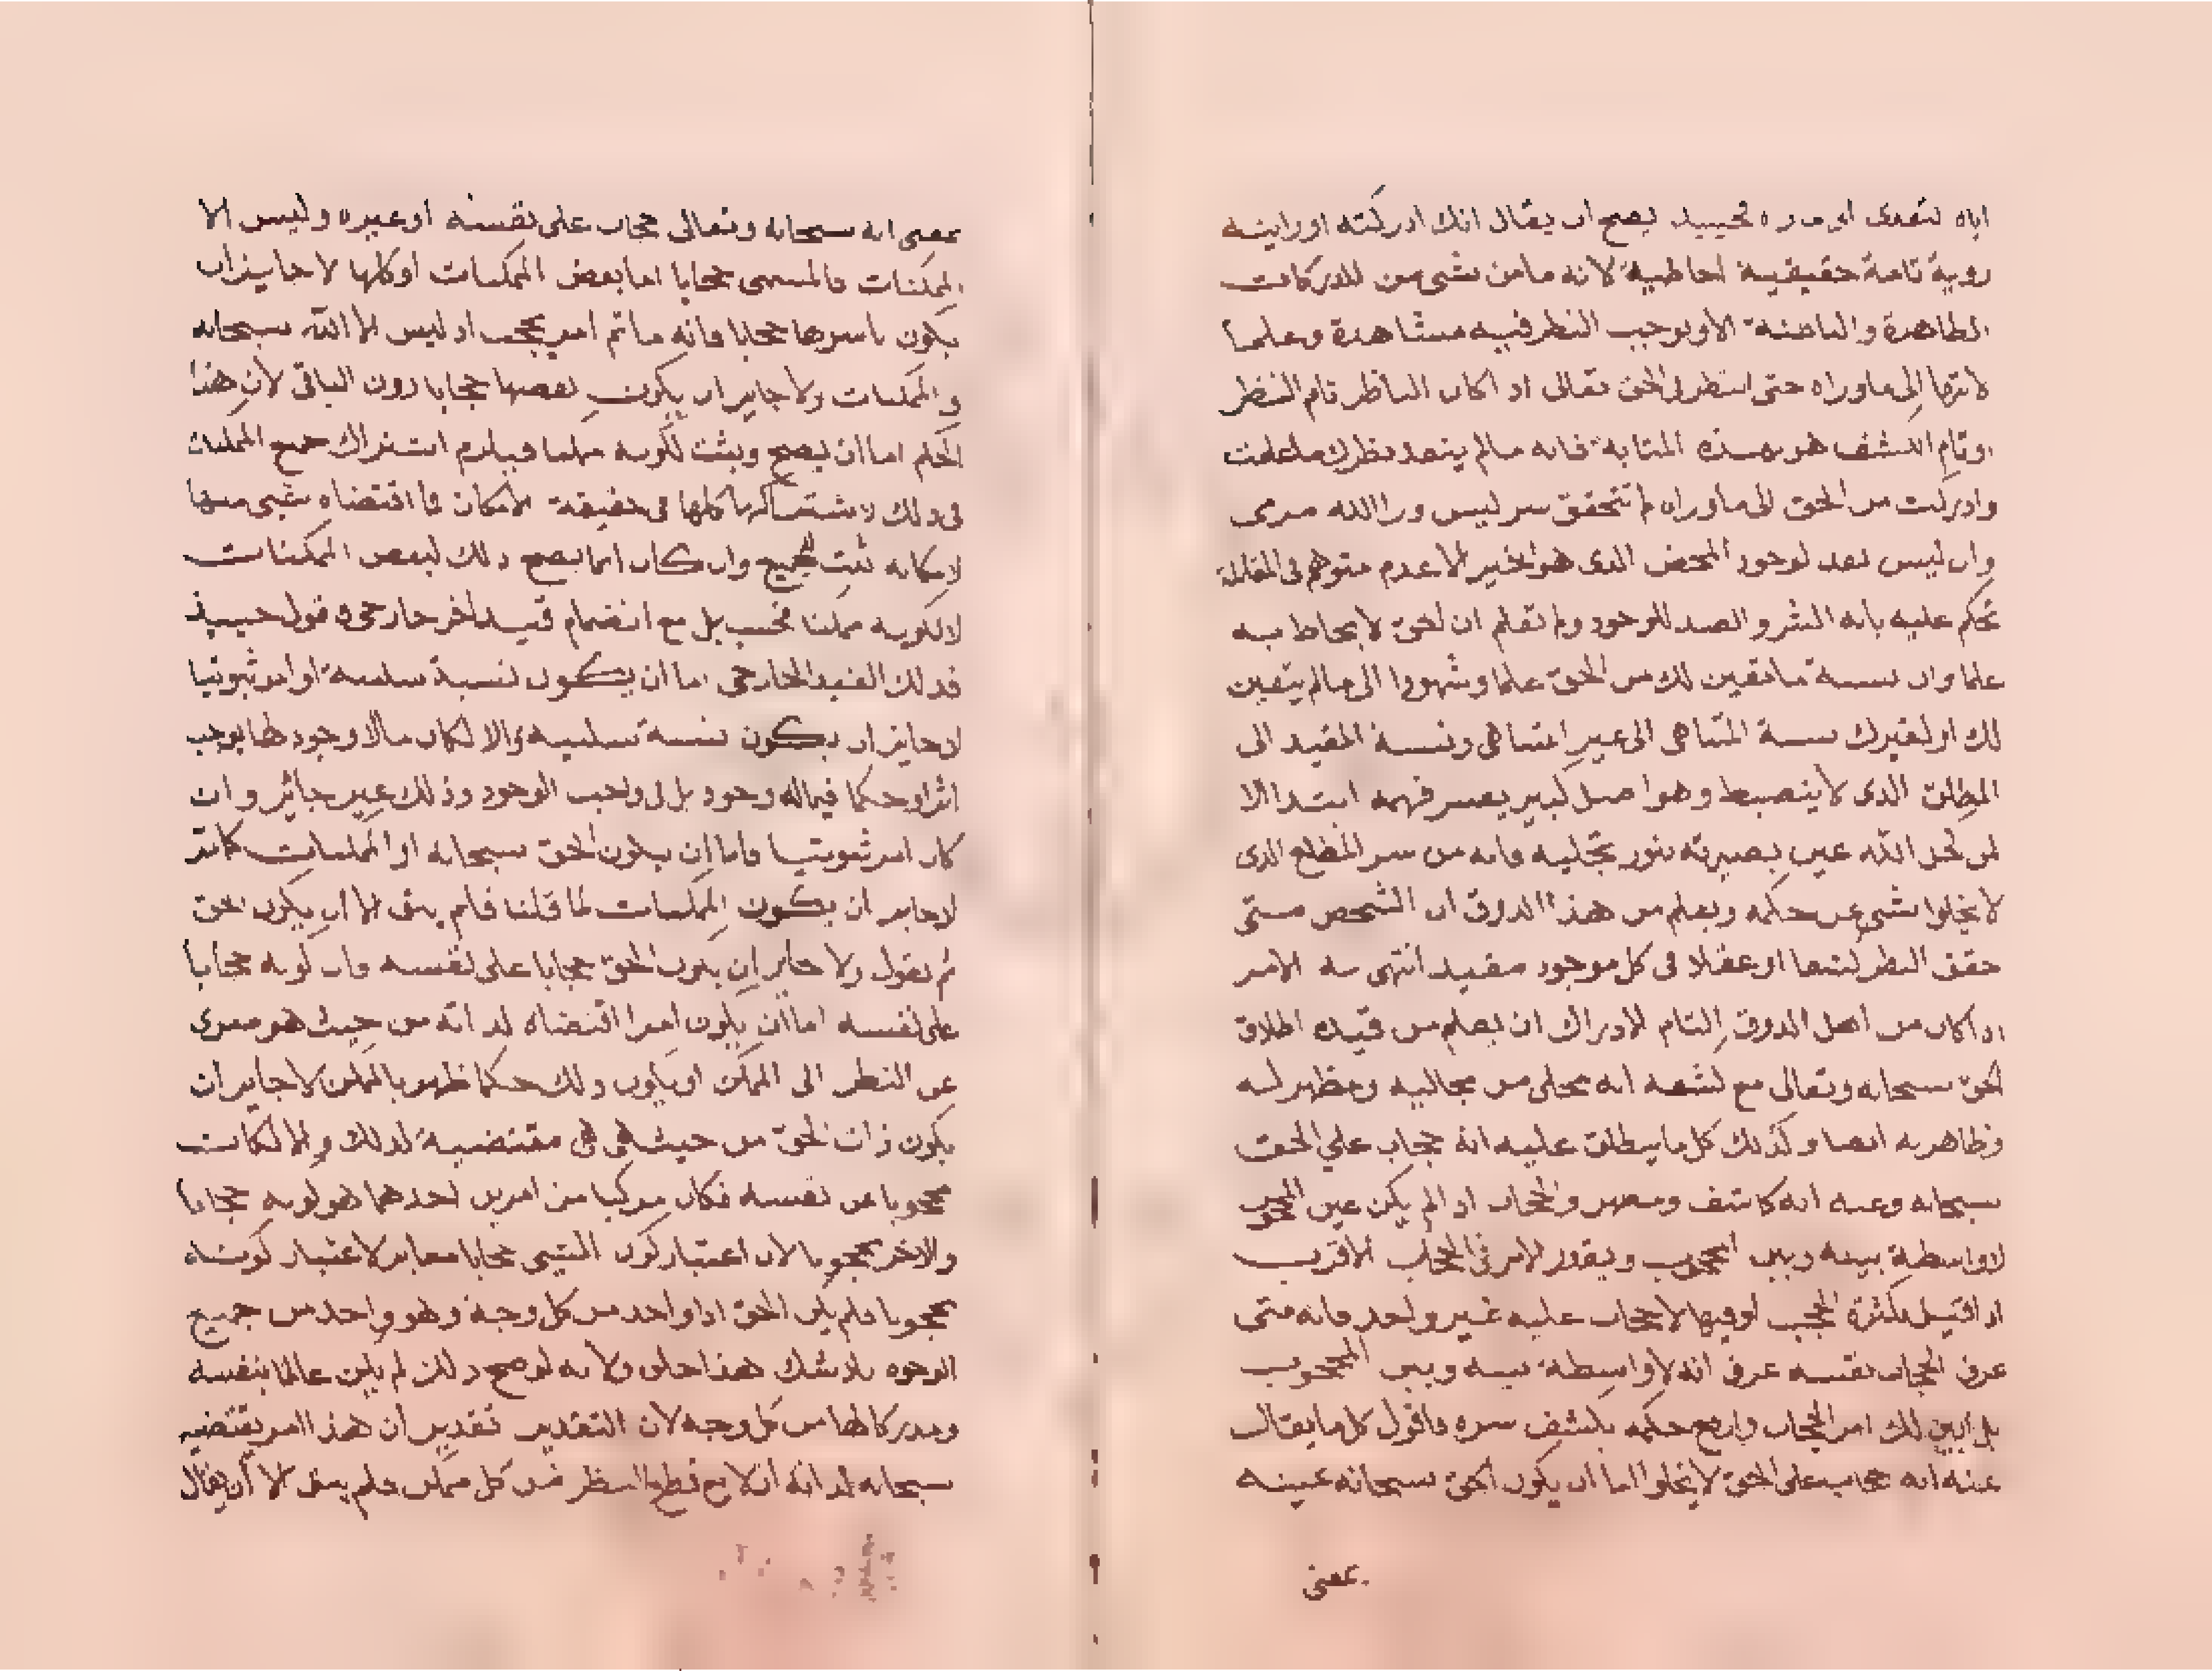 اياه لتعدى الى ما وراه فحينيد يصح ان يقال انك ادركته او رايته
روية تامة حقيقية احاطية لانه ما من شي من المدركات
الظاهرة والباطنة الا ويوجب النظر فيه مشاهدة وعلما
لانتها الى ماوراه حتى انتظر في الحق تعالى اد اكان الناظر تام النظر
اوتام الكشف هو بهذه المثابة فانه مالم ينعد نظرك ما علمت
وادركت من الحق الى ماوراه لم تتحقق سر ليس ورا الله مرمى
وان ليس بعد لوجود المحض الذى هو الخير الا عدم متوهم فى المقابلة
تحكم عليه بانه الشر والضد للوجود ولم تعلم ان لحق لا يحاط به
علما وان نسبة ما تعين لك من الحق علما وشهودا الى مالم يتعين
لك او لغيرك نسبة المتناهى الى غير المتناهى ونسبة المقيد الى
المطلق الذى لا ينضبط وهو اصل كبير يعسر فهمه ابتدا الا
لمن كحل الله عين بصيرته بنور تجليه فانه من سر المطلع الذى
لا يخلوا شي عن حكمه ويعلم من هذا الذوق ان الشخص متى
حقق النظر كشفا او عقلا فى كل موجود مقيد انتهى به الامر
اد اكان من اهل الذوق التام الادراك ان يعلم من قيده اطلاق
لحق سبحانه وتعالى مع كشفه انه مجلى من مجاليه ومظهر له
وظاهر به ايضا وكذلك كل ما يطلق عليه انه حجاب على الحق
سبحانه وعنه انه كاشف ومظهر والحجاب اد الم يكن عين المحجوب
لا واسطة بينه وبين المحجوب ويقرر الامر فى الحجاب الاقرب
اد اقيل بكثرة الحجب او فيها لا حجاب عليه غير واحد فانه متى
عرف الحجاب نفسه عرف انه لا واسطة بينه وبين المحجوب
بل ابين لك امر الحجاب وارفع حكمه بكشف سره فاقول كل ما يقال
عنه انه حجاب على الحق لا يخلوا اما ان يكون الحق سبحانه عينه
بمعنى
بمعنى انه سبحانه وتعالى حجاب على نفسه او غيره وليس الا
الممكنات فالمسمى حجابا اما بعض الممكنات او كلها لا جايز ان
يكون باسرها حجابا فانه ما ثم امر يحجب اد ليس الا الله سبحانه
والممكنات ولا جايز ان يكون بعضها حجابا دون الباقى لان هذا
الحكم اما ان يصح ويثبت لكونه ممكنا فيلزم اشتراك جميع الممكنات
فى ذلك لاشتراكها كلها فى حقيقة الامكان فما اقتضاه شي منها
لامكانه ثبت للجميع وان كان انما يصح ذلك لبعض الممكنات
لا لكونه ممكنا فحسب بل مع انضمام قيد اخر خارجى فنقول حينيذ
فذلك القيد الخارجى اما ان يكون نسبة سلبية او امر ثبوتيا
لا جايز ان يكون نسبة سلبيه والا لكان مالا وجود لها يوجب
اثرا وحكما فيما له وجود بل فى واجب الوجود وذلك غير جائز وان
كان امر ثبوتيا فاما ان يكون الحق سبحانه او الممكنات كانت
لا جايز ان يكون الممكنات لما قلنا فلم يبق الا ان يكون الحق
ثم نقول ولا جايز ان يكون الحق حجابا على نفسه فان كونه حجابا
على نفسه اما ان يكون امرا اقتضاه لذاته من حيث هو معرى
عن النظر الى الممكن او يكون ذلك حكما ظهر بالممكن لا جايز ان
يكون ذات الحق من حيث هى هى مقتضية لذلك والا لكانت
محجوبا عن نفسه فكان مركبا من امرين احدهما هو كونه حجابا
والاخر محجوبا لان اعتبار كون الشي حجابا مغاير لاعتبار كونه
محجوبا فلم يكن الحق اذا واحد من كل وجه وهو واحد من جميع
الوجوه بلا شك هذا خلف ولانه لو صح ذلك لم يكن عالما بنفسه
ومدركا لها من كل وجه لان التقدير تقدير ان هذا امر يقتضيه
سبحانه لذاته ان لامع قطع النظر عن كل ممكن فلم يبق الا ان يقال